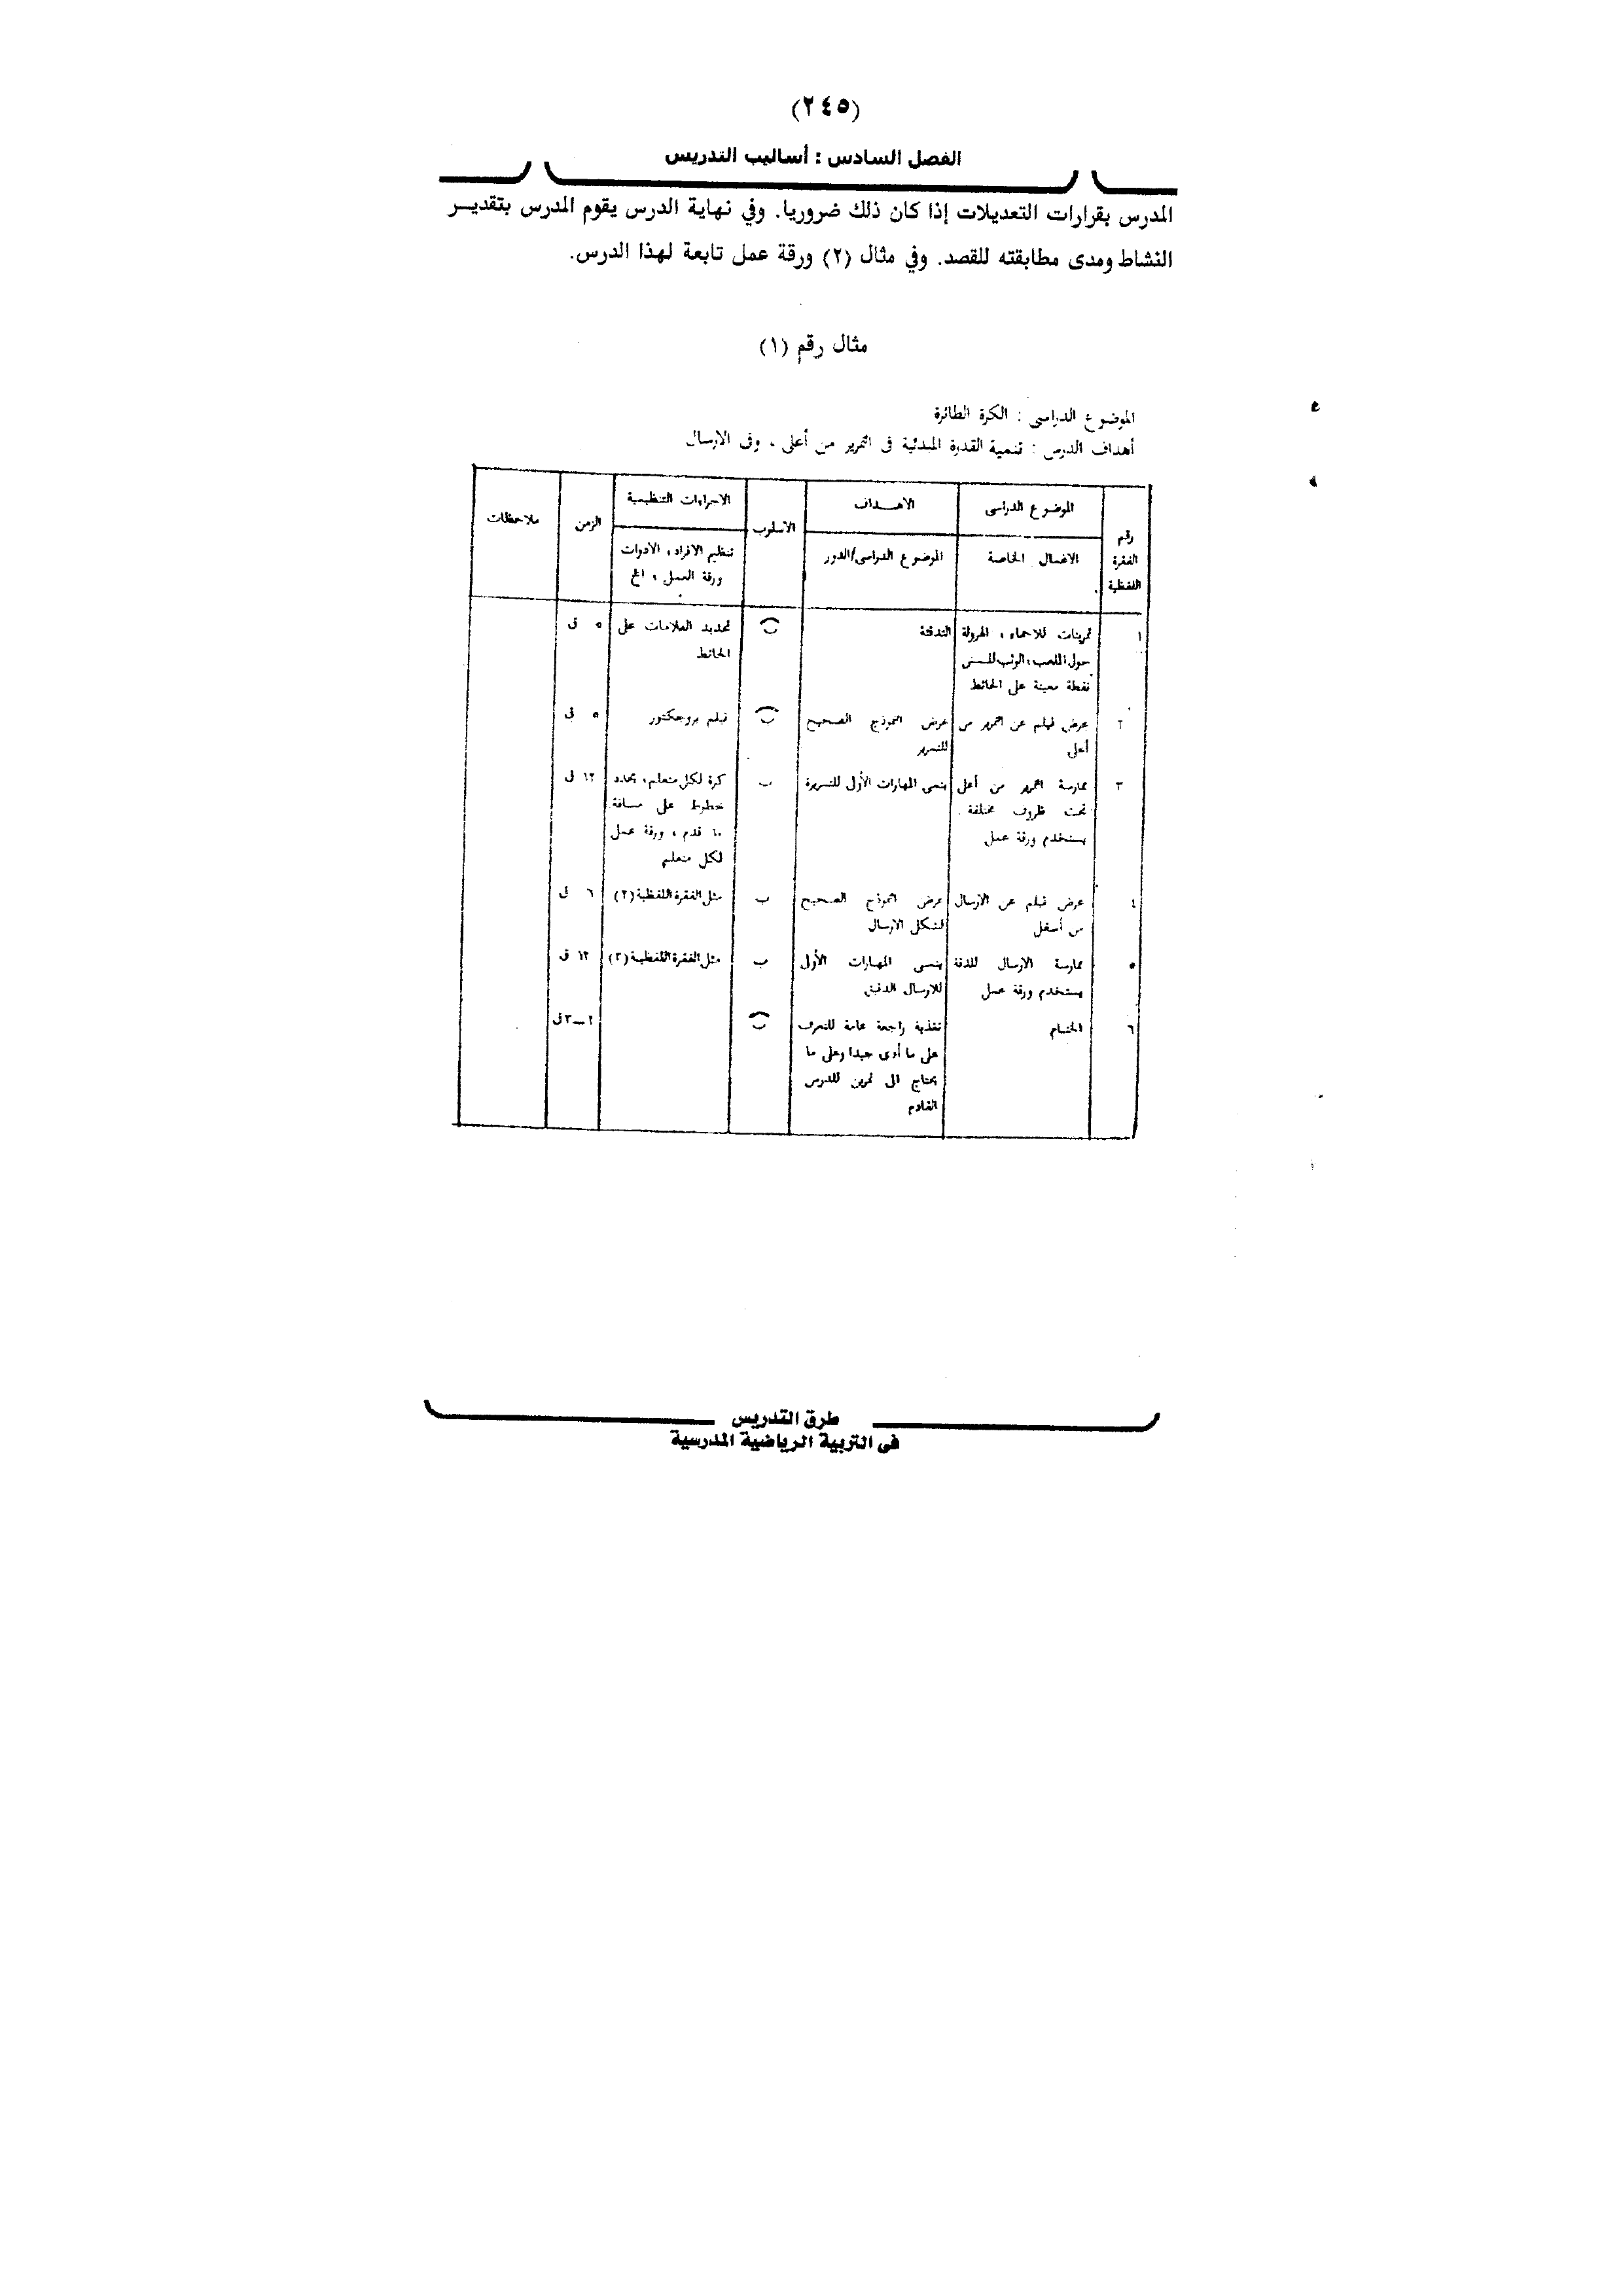 (٢٤٥)
الفصل السادس : أساليب التدريس
المدرس بقرارات التعديلات إذا كان ذلك ضروريا. وفي نهاية الدرس يقوم المدرس بتقديـــر
النشاط ومدى مطابقته للقصد. وفي مثال (٢) ورقة عمل تابعة لهذا الدرس.
مثال رقم (١)
الموضوع الدراسى : الكرة الطائرة
أهداف الدرس : تنمية القدرة المبدئية فى التمرير من أعلى ، وفى الارسال
رقم الفقرة اللفظية
الموضوع الدراسى
الاعمال الخاصة
الاهــداف
الموضوع الدراسى/الدور
الاسلوب
الاجراءات التنظيمية
تنظيم الافراد ، الأدوات
ورقة العمل ، الخ
الزمن
ملاحظات
١
تمرينات للاحماء ، الهرولة
حول الملعب ، الوثب للمس
نقطة معينة على الحائط
التدفئة
(ب)
تحديد العلامات على
الحائط
٥ ق
٢
عرض فيلم عن التمرير من
أعلى
عرض النموذج الصحيح
للتمرير
(ب)
فيلم بروجكتور
٥ ق
٣
ممارسة التمرير من أعلى
تحت ظروف مختلفة .
يستخدم ورقة عمل
ينمى المهارات الأولى للتمريرة
ب
كرة لكل متعلم ، يحدد
خطوط على مسافة
١٠ قدم ، ورقة عمل
لكل متعلم
١٢ ق
٤
عرض فيلم عن الارسال
من أسفل
عرض النموذج الصحيح
لشكل الارسال
ب
مثل الفقرة اللفظية (٢)
٦ ق
٥
ممارسة الارسال للدقة
يستخدم ورقة عمل
ينمى المهارات الأولى
للارسال الدقيق
ب
مثل الفقرة اللفظية (٣)
١٢ ق
٦
الختام
تغذية راجعة عامة للتعرف
على ما أدى جيدا وعلى ما
يحتاج الى تمرين للدرس
القادم
(ب)
٢ــ٣ ق
طرق التدريس
فى التربية الرياضية المدرسية